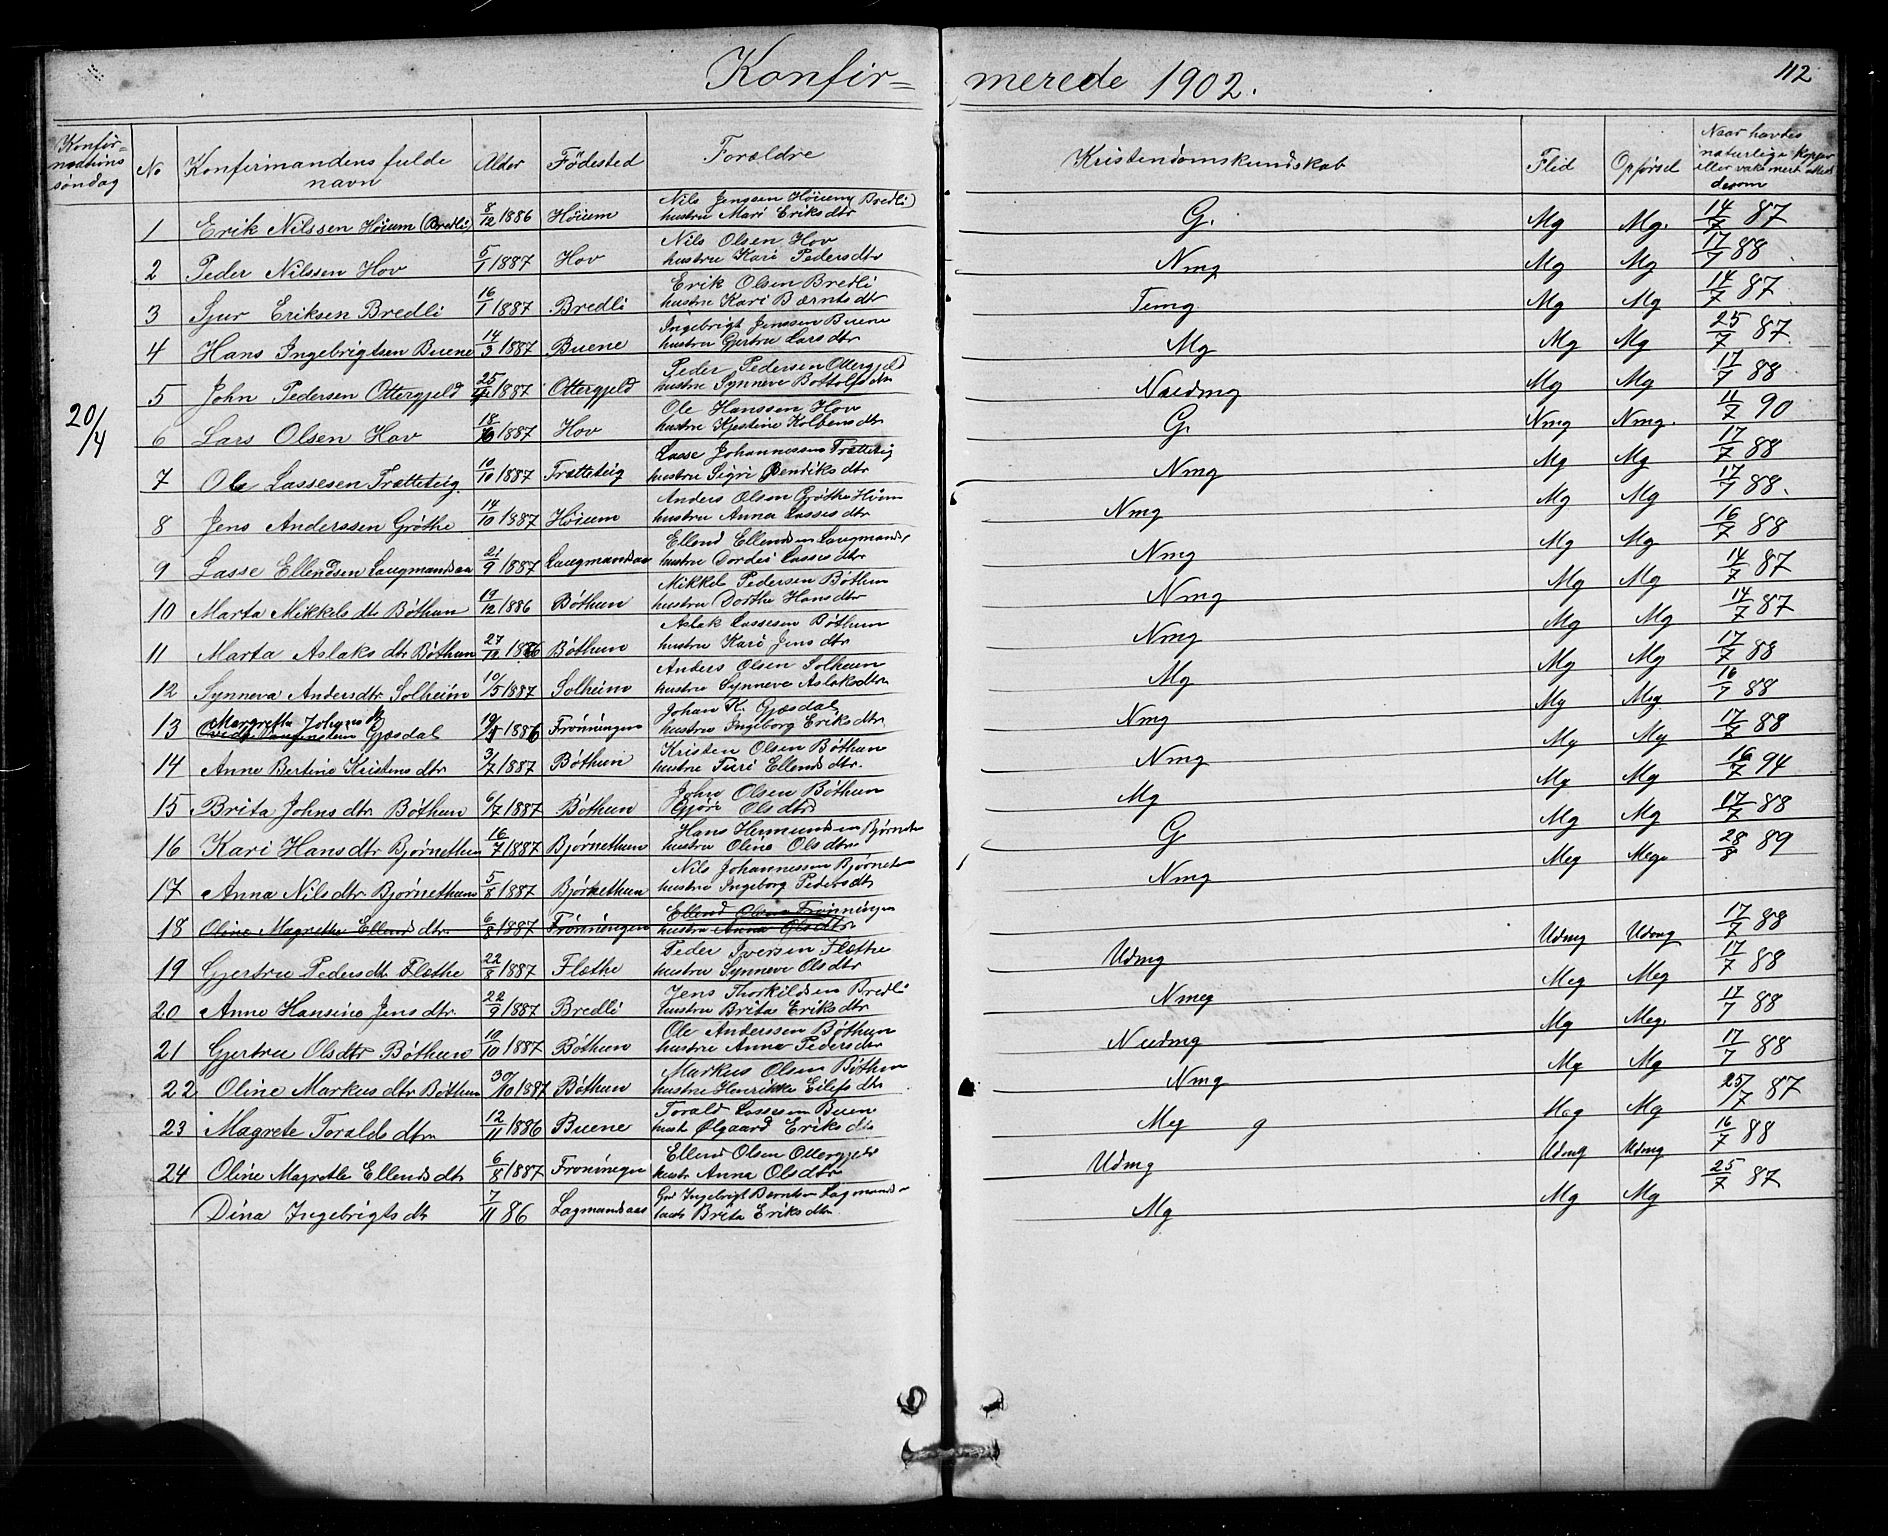 Konfir= merede 1902. 112
Konfir= mations søndag | No | Konfirmandens fulde navn | Alder | Fødested | Forældre | Kristendomskundskab | Flid | Opførsel | Naar havdes naturlige Kopper eller vakc
20/4
1 Erik Nilssen Høium (Bredli) 8/12 1886 Høium Nils Jenssen Høium (Bredli) hustru Mari Eriksdtr G. Mg Mg. 14/7 87
2 Peder Nilssen Hov 5/1 1887 Hov Nils Olsen Hov hustru Kari Pedersdtr Nmg Mg Mg 17/7 88
3 Sjur Eriksen Bredli 16/1 1887 Bredli Erik Olsen Bredli hustru Kari Bærntsdtr Temg Mg Mg 14/7 87
4 Hans Ingebrigtsen Buene 14/3 1887 Buene Ingebrigt Jenssen Buene hustru Gjertru Larsdtr Mg Mg Mg 25/7 87
5 John Pedersen Ottergjeld 25/ 1887 Ottergjeld Peder Pedersen Ottergjeld hustru Synneve Bottolfsdtr Nudmg Mg Mg 17/7 88
6 Lars Olsen Hov 18/ 1887 Hov Ole Hanssen Hov hustru Kjestine Kolbensdtr G. Nmg Nmg. 11/7 90
7 Ole Lassesen Trætteteig 10/10 1887 Trætteteig Lasse Johannessen Trætteteig hustru Sigri Bendiksdtr Nmg Mg Mg 17/7 88
8 Jens Anderssen Grøthe 14/10 1887 Høium Anders Olsen Grøthe Høium hustru Anna Lassesdtr Nmg Mg Mg 17/7 88.
9 Lasse Ellendsen Laugmandsaa 21/9 1887 Laugmandsaa Ellend Ellendsen Laugmands hustru Dordei Lassesdtr Nmg Mg Mg 16/7 88
10 Marta Mikkelsdtr Bøthun 19/12 1886 Bøthun Mikkel Pedersen Bøthun hustru Dorthe Hansdtr Nmg Mg Mg 14/7 87
11 Marta Aslaksdtr Bøthun 27/12 1886 Bøthun Aslak Lassesen Bøthun hustru Kari Jensdtr Nmg Mg Mg 14/7 87
12 Synneva Andersdtr Solheim 10/5 1887 Solheim Anders Olsen Solheim hustru Synneve Aslaksdtr Mg Mg Mg 17/7 88
13 Margretha Johans Gjesdal 19/ 1886 Frønningen Johan K. Gjesdal hustru Ingeborg Eriksdtr Nmg Mg Meg 16/7 88
14 Anne Bertine Kristensdtr 3/7 1887 Bøthun Kristen Olsen Bøthun hustru Turi Ellendsdtr. Nmg Mg Mg 17/7 88
15 Brita Johnsdtr Bøthun 6/7 1887 Bøthun John Olsen Bøthun Gjøri Olsdtr Mg Mg Mg 16/7 94
16 Kari Hansdtr Bjørnethun 16/7 1887 Bjørnethun Hans Hermundsen Bjørneth hustru Oline Olsdtr G Mg Mg 17/7 88
17 Anna Nilsdtr Bjørnethun 5/8 1887 Bjørnethun Nils Johannessen Bjørnet hustru Ingeborg Pedersdtr Nmg Meg Meg 28/8 89
18 Oline Magrethe Ellendsdtr. 6/8 1887 Frønningen Ellend Olsen Frønningen hustru Anna Olsdtr
19 Gjertru Pedersdtr Flæthe 22/8 1887 Flæthe Peder Iversen Flæthe hustru Synneve Olsdtr Udmg Udmg Udmg 17/7 88
20 Anne Hansine Jensdtr. 22/9 1887 Bredli Jens Thorkildsen Bredli hustru Brita Eriksdtr Nmeg Meg Meg 17/7 88
21 Gjertru Olsdtr Bøthun 10/10 1887 Bøthun Ole Anderssen Bøthun hustru Anna Pedersdtr Nudmg Mg Meg. 17/7 88
22 Oline Markusdtr Bøthun 30/10 1887 Bøthun Markus Olsen Bøthun hustru Henrikke Eilifsdtr Nmg Mg Mg 17/7 88
23 Magrete Toraldsdtr 12/11 1886 Buene Torald Lassesen Buen hust Ølgaard Eriksdtr Meg g Meg Mg 25/7 87
24 Oline Magrethe Ellendsdtr 6/8 1887 Froningen Ellend Olsen Ottergjeld hust Anna Olsdtr Udmg Udmg Udmg 16/7 88
Dina Ingebrigtsdtr 7/11 86 Lagmandsaas Gm Ingebrigt Berntsen Lagmands Brita Eriksdtr. Mg Mg Mg 25/7 87